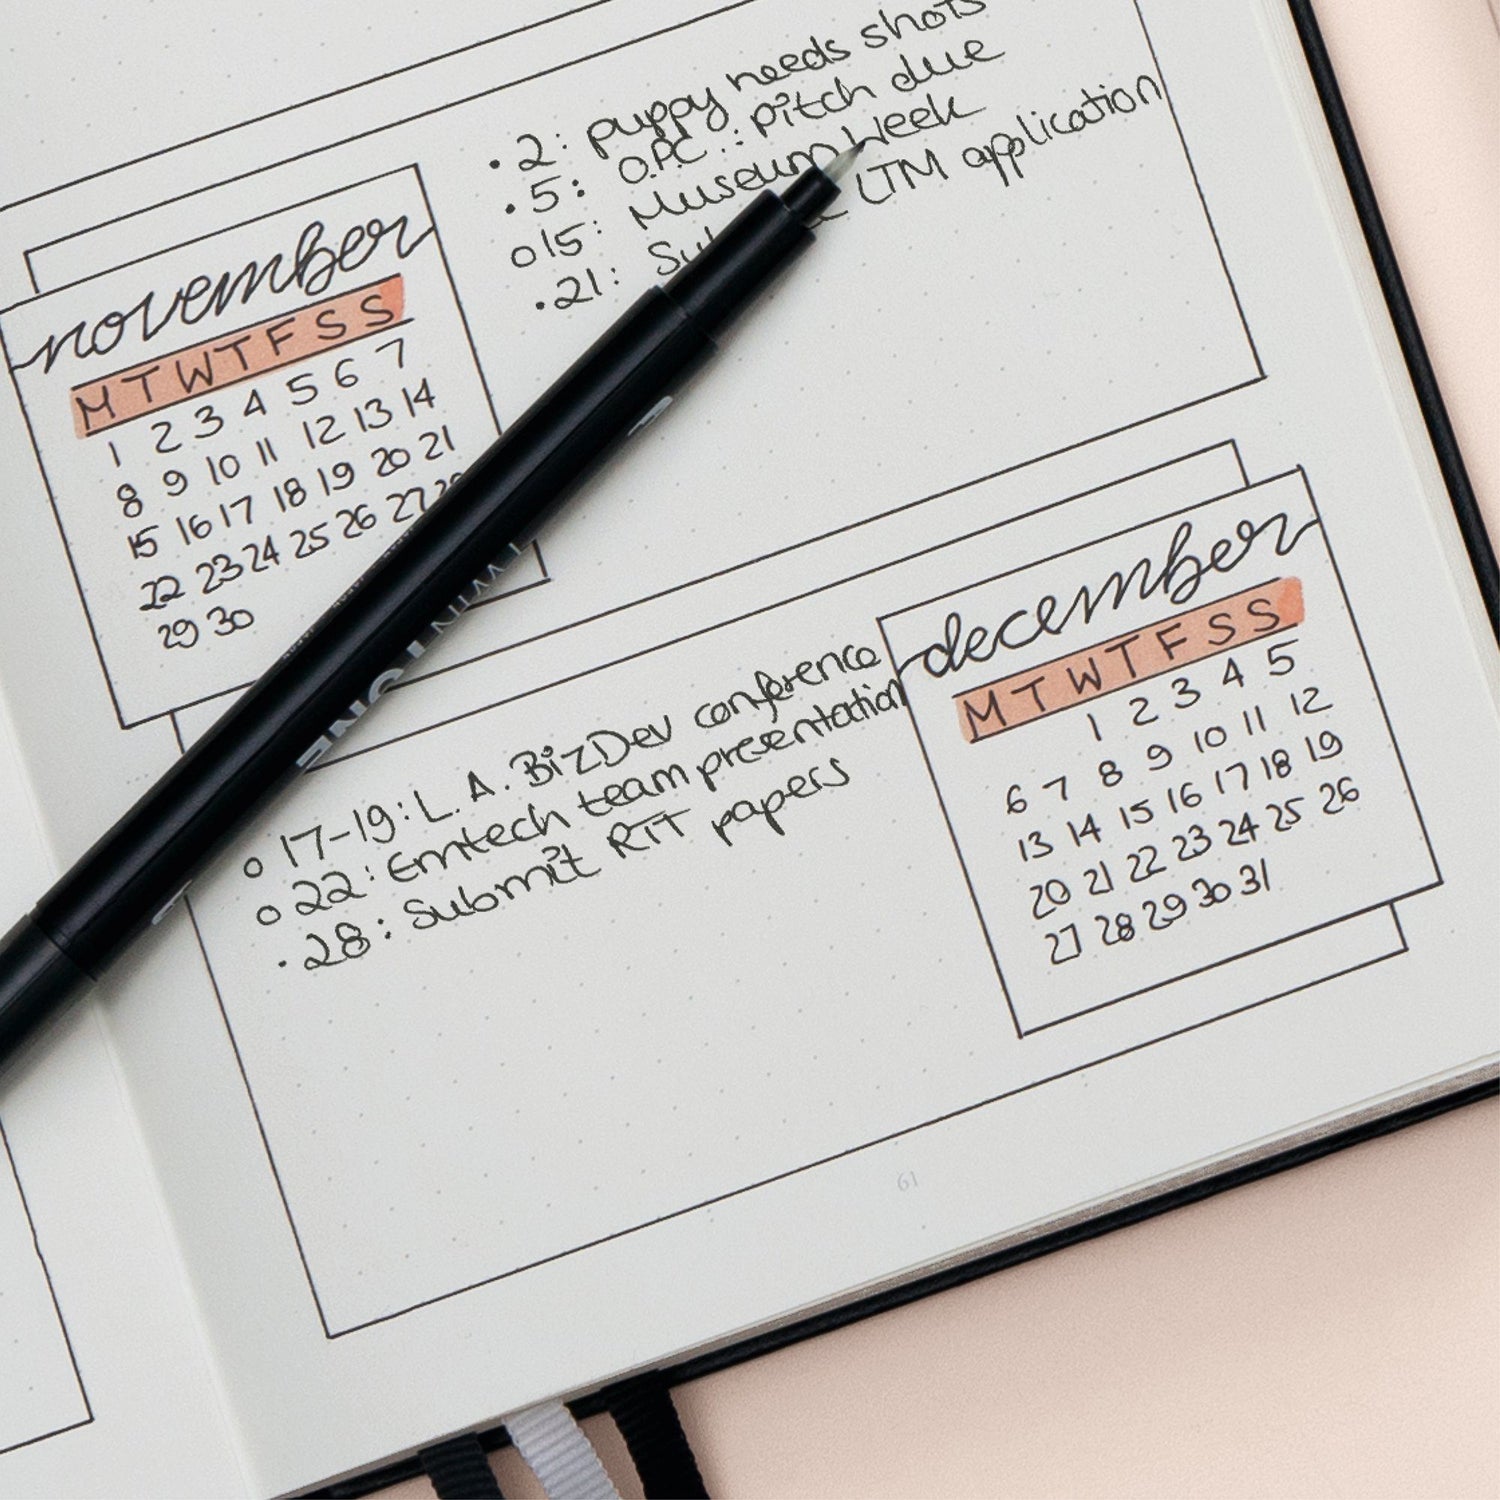 • 2: puppy needs shots
• 5: O.P.C.: pitch due
o 15: Museum Week
• 21: LTM application
november
M T W T F S S
1 2 3 4 5 6 7
8 9 10 11 12 13 14
15 16 17 18 19 20 21
22 23 24 25 26 27 28
29 30
december
M T W T F S S
1 2 3 4 5
6 7 8 9 10 11 12
13 14 15 16 17 18 19
20 21 22 23 24 25 26
27 28 29 30 31
o 17-19: L.A. BizDev conference
o 22: Emtech team presentation
• 28: Submit RTT papers
61